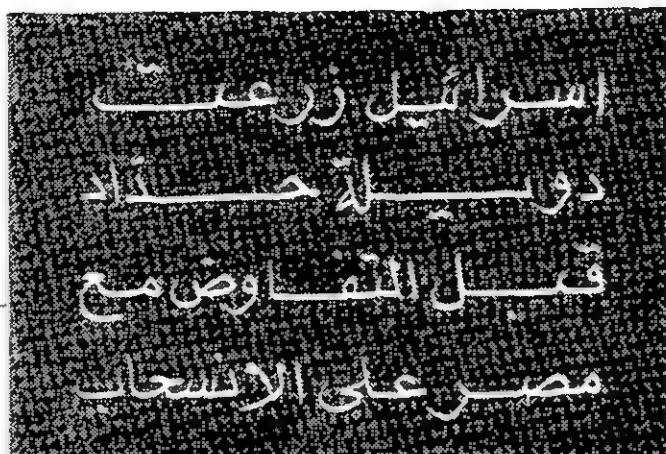 اسرائيل زرعت
دويلة حداد
قبل التفاوض مع
مصر على الانسحاب